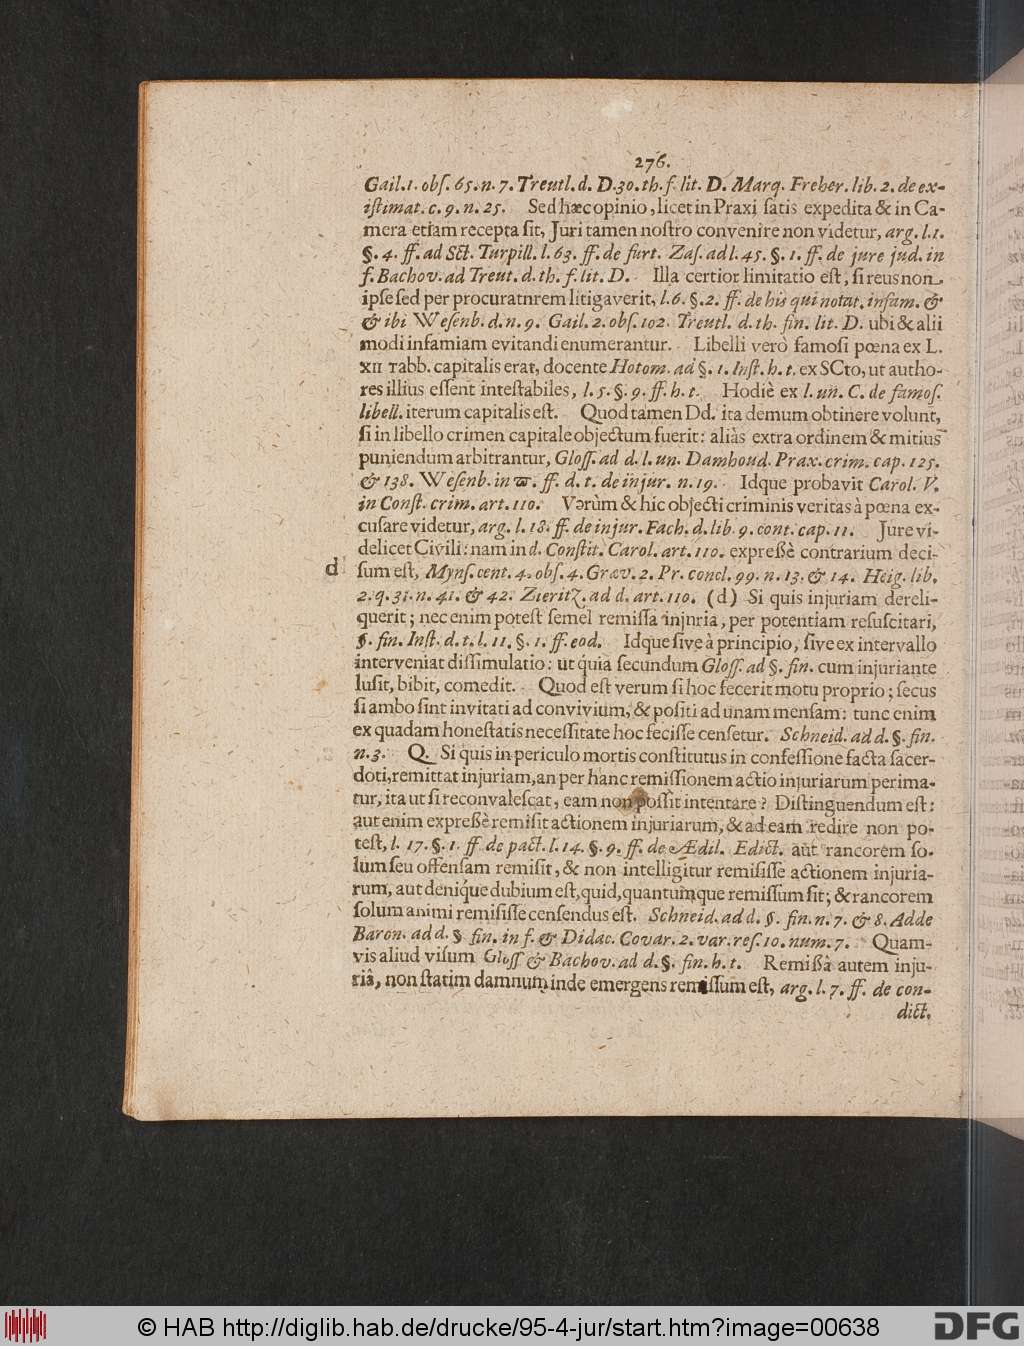 276.
Gail. 1. obſ. 65. n. 7. Treutl. d. D. 30. th. f. lit. D. Marq. Freher. lib. 2. de ex-
iſtimat. c. 9. n. 25. Sed hæc opinio, licet in Praxi ſatis expedita & in Ca-
mera etiam recepta ſit, Juri tamen noſtro convenire non videtur, arg. l. 1.
§. 4. ff. ad Sct. Turpill. l. 63. ff. de furt. Zaſ. ad l. 45. §. 1. ff. de jure jud. in
f. Bachov. ad Treut. d. th. f. lit. D. Illa certior limitatio eſt, ſi reus non
ipſe ſed per procuratnrem litigaverit, l. 6. §. 2. ff. de his qui notat. infam. &
& ibi Weſenb. d. n. 9. Gail. 2. obſ. 102. Treutl. d. th. fin. lit. D. ubi & alii
modi infamiam evitandi enumerantur. Libelli verò famoſi pœna ex L.
XII Tabb. capitalis erat, docente Hotom. ad §. 1. Inſt. h. t. ex SCto, ut autho-
res illius eſſent inteſtabiles, l. 5. §. 9. ff. h. t. Hodiè ex l. un. C. de famoſ.
libell. iterum capitalis eſt. Quod tamen Dd. ita demum obtinere volunt,
ſi in libello crimen capitale objectum fuerit: aliàs extra ordinem & mitius
puniendum arbitrantur, Gloſſ. ad d. l. un. Damhoud. Prax. crim. cap. 125.
& 138. Weſenb. in ϖ. ff. d. t. de injur. n. 19. Idque probavit Carol. V.
in Conſt. crim. art. 110. Verùm & hic objecti criminis veritas à pœna ex-
cuſare videtur, arg. l. 18. ff. de injur. Fach. d. lib 9. cont. cap. 11. Jure vi-
delicet Civili: nam in d. Conſtit. Carol. art. 110. expreßè contrarium deci-
d ſum eſt, Mynſ. cent. 4. obſ. 4. Græv. 2. Pr. concl. 99. n. 13. & 14. Heig. lib.
2. q. 31. n. 41. & 42. Zieritz. ad d. art. 110. (d) Si quis injuriam dereli-
querit; nec enim poteſt ſemel remiſſa injnria, per potentiam reſuſcitari,
§. fin. Inſt. d. t. l. 11. §. 1. ff. eod. Idque ſive à principio, ſive ex intervallo
interveniat diſſimulatio: ut quia ſecundum Gloſſ. ad §. fin. cum injuriante
luſit, bibit, comedit. Quod eſt verum ſi hoc fecerit motu proprio; ſecus
ſi ambo ſint invitati ad convivium, & poſiti ad unam menſam: tunc enim
ex quadam honeſtatis neceſſitate hoc feciſſe cenſetur. Schneid. ad d. §. fin.
n. 3. Q. Si quis in periculo mortis conſtitutus in confeſſione facta ſacer-
doti, remittat injuriam, an per hanc remiſſionem actio injuriarum perima-
tur, ita ut ſi reconvaleſcat, eam non poſſit intentare? Diſtinguendum eſt:
aut enim expreßè remiſit actionem injuriarum, & ad eam redire non po-
teſt, l. 17. §. 1. ff. de pact. l. 14. §. 9. ff. de Ædil. Edict. aut rancorem ſo-
lum ſeu offenſam remiſit, & non intelligitur remiſiſſe actionem injuria-
rum, aut denique dubium eſt, quid, quantumque remiſſum ſit; & rancorem
ſolum animi remiſiſſe cenſendus eſt. Schneid. ad d. §. fin. n. 7. & 8. Adde
Baron. ad d. § fin. in f. & Didac. Covar. 2. var. reſ. 10. num. 7. Quam-
vis aliud viſum Gloſſ & Bachov. ad d. §. fin. h. t. Remißâ autem inju-
riâ, non ſtatim damnum inde emergens remiſſum eſt, arg. l. 7. ff. de con-
dict.
© HAB http://diglib.hab.de/drucke/95-4-jur/start.htm?image=00638
DFG